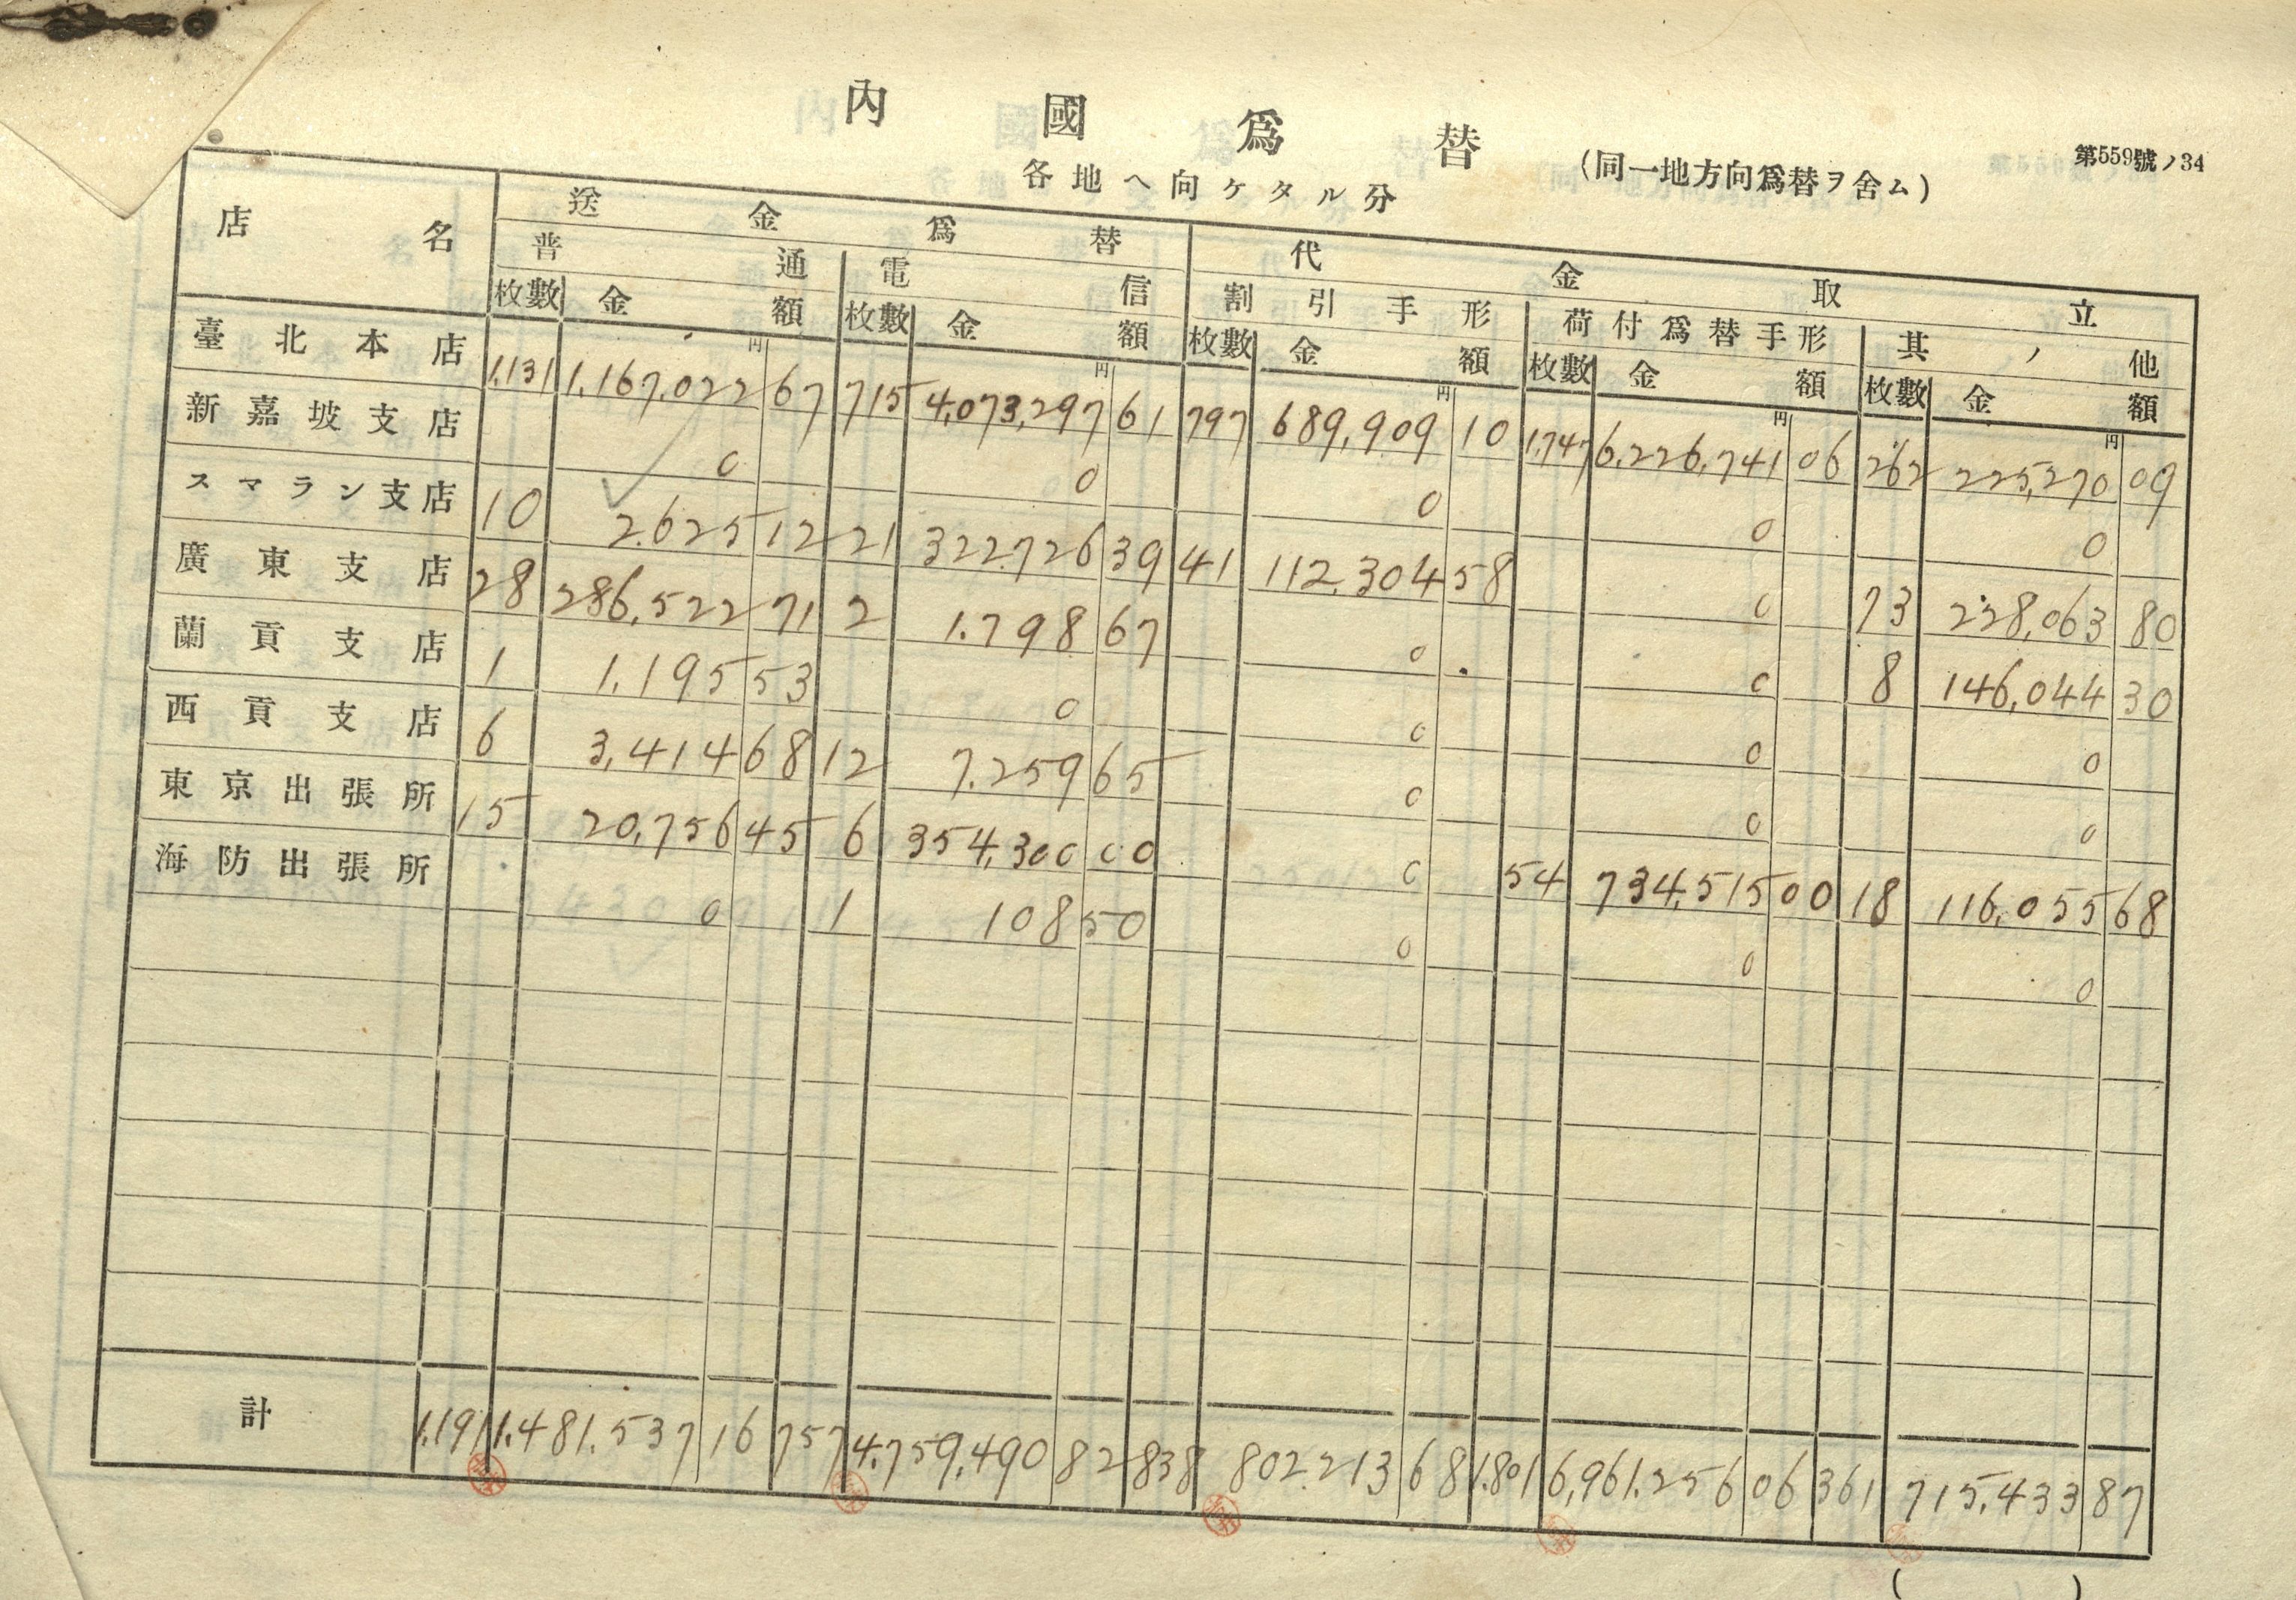 內國爲替
第559號ノ34
各地ヘ向ケタル分
(同一地方向爲替ヲ含ム)
店名 送金爲替 代金取立
普通 電信 割引手形 荷付爲替手形 其ノ他
枚數 金額 枚數 金額 枚數 金額 枚數 金額 枚數 金額
円 円 円 円 円
臺北本店 1.131 1.167.022 67 715 4,073,297 61 797 689,909 10 1.747 6.226,741 06 262 225,270 09
新嘉坡支店 0 0 0 0 0
スマラン支店 10 2.625 12 21 322.726 39 41 112.304 58 0 73 228,063 80
廣東支店 28 286,522 71 2 1.798 67 0 0 8 146,044 30
蘭貢支店 1 1.195 53 0 0 0 0
西貢支店 6 3,414 68 12 7.259 65 0 0 0
東京出張所 15 20,756 45 6 354,300 00 0 54 734,515 00 18 116,055 68
海防出張所 0 1 108 50 0 0 0
計 1.191 1.481.537 16 757 4.759,490 82 838 802.213 68 1.801 6,961.256 06 361 715.433 87
( )